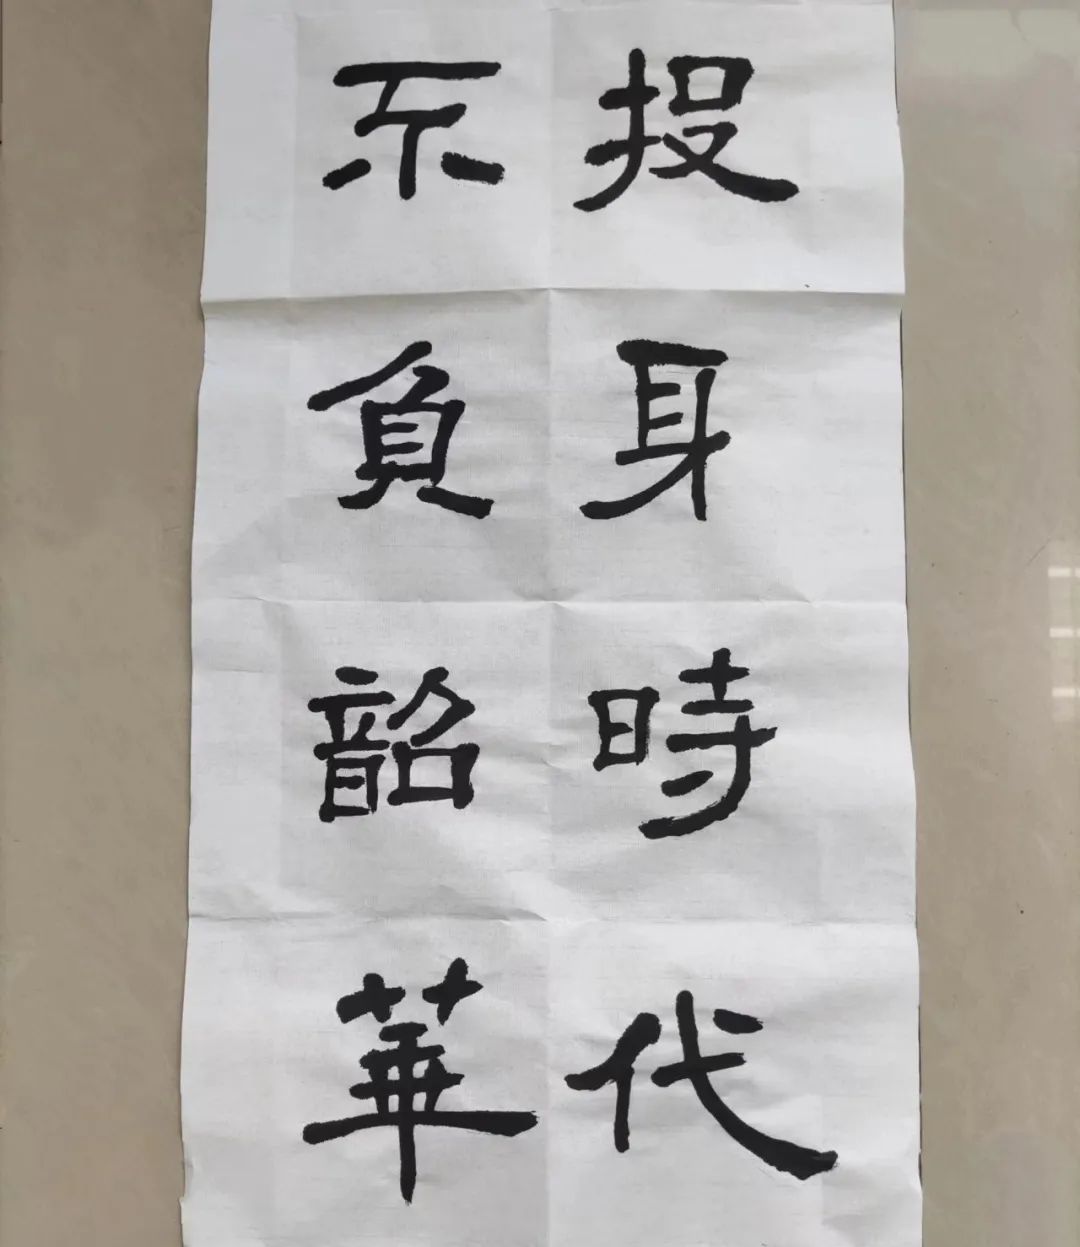 投身時代
不負韶華